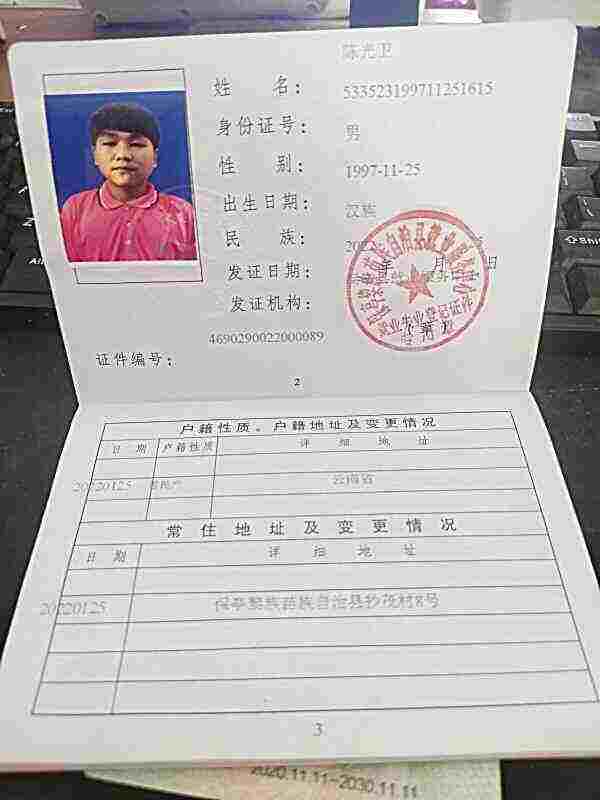 陈光卫
姓 名: 533523199711251615
身份证号: 男
性 别: 1997-11-25
出生日期: 汉族
民 族: 年 月 日
发证日期:
发证机构:
就业失业登记证件
4690290022000089
证件编号:
2
户籍性质、户籍地址及变更情况
日 期 户籍性质 详 细 地 址
20220125 云南省
常 住 地 址 及 变 更 情 况
日 期 详 细 地 址
20220125 保亭黎族苗族自治县 村8号
3
2020.11.11-2030.11.11